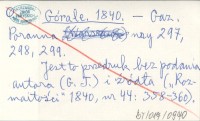 Górale. 1840. – Gaz.
Poranna nry 297,
298, 299.
Jest to przedruk bez podania
autora (G. J.) i źródła („Roz-
maitości” 1840, nr 44: 358-360).